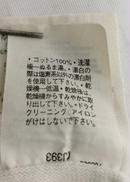 ・コットン100%・洗濯
機―ぬるま湯。漂白の
際は塩素系以外の漂白剤
を使用して下さい。・乾
燥機―低温・乾燥後は、乾
燥機からすみやかに取
り出して下さい。・ドライ
クリーニング、アイロン
がけはしないで下さい。